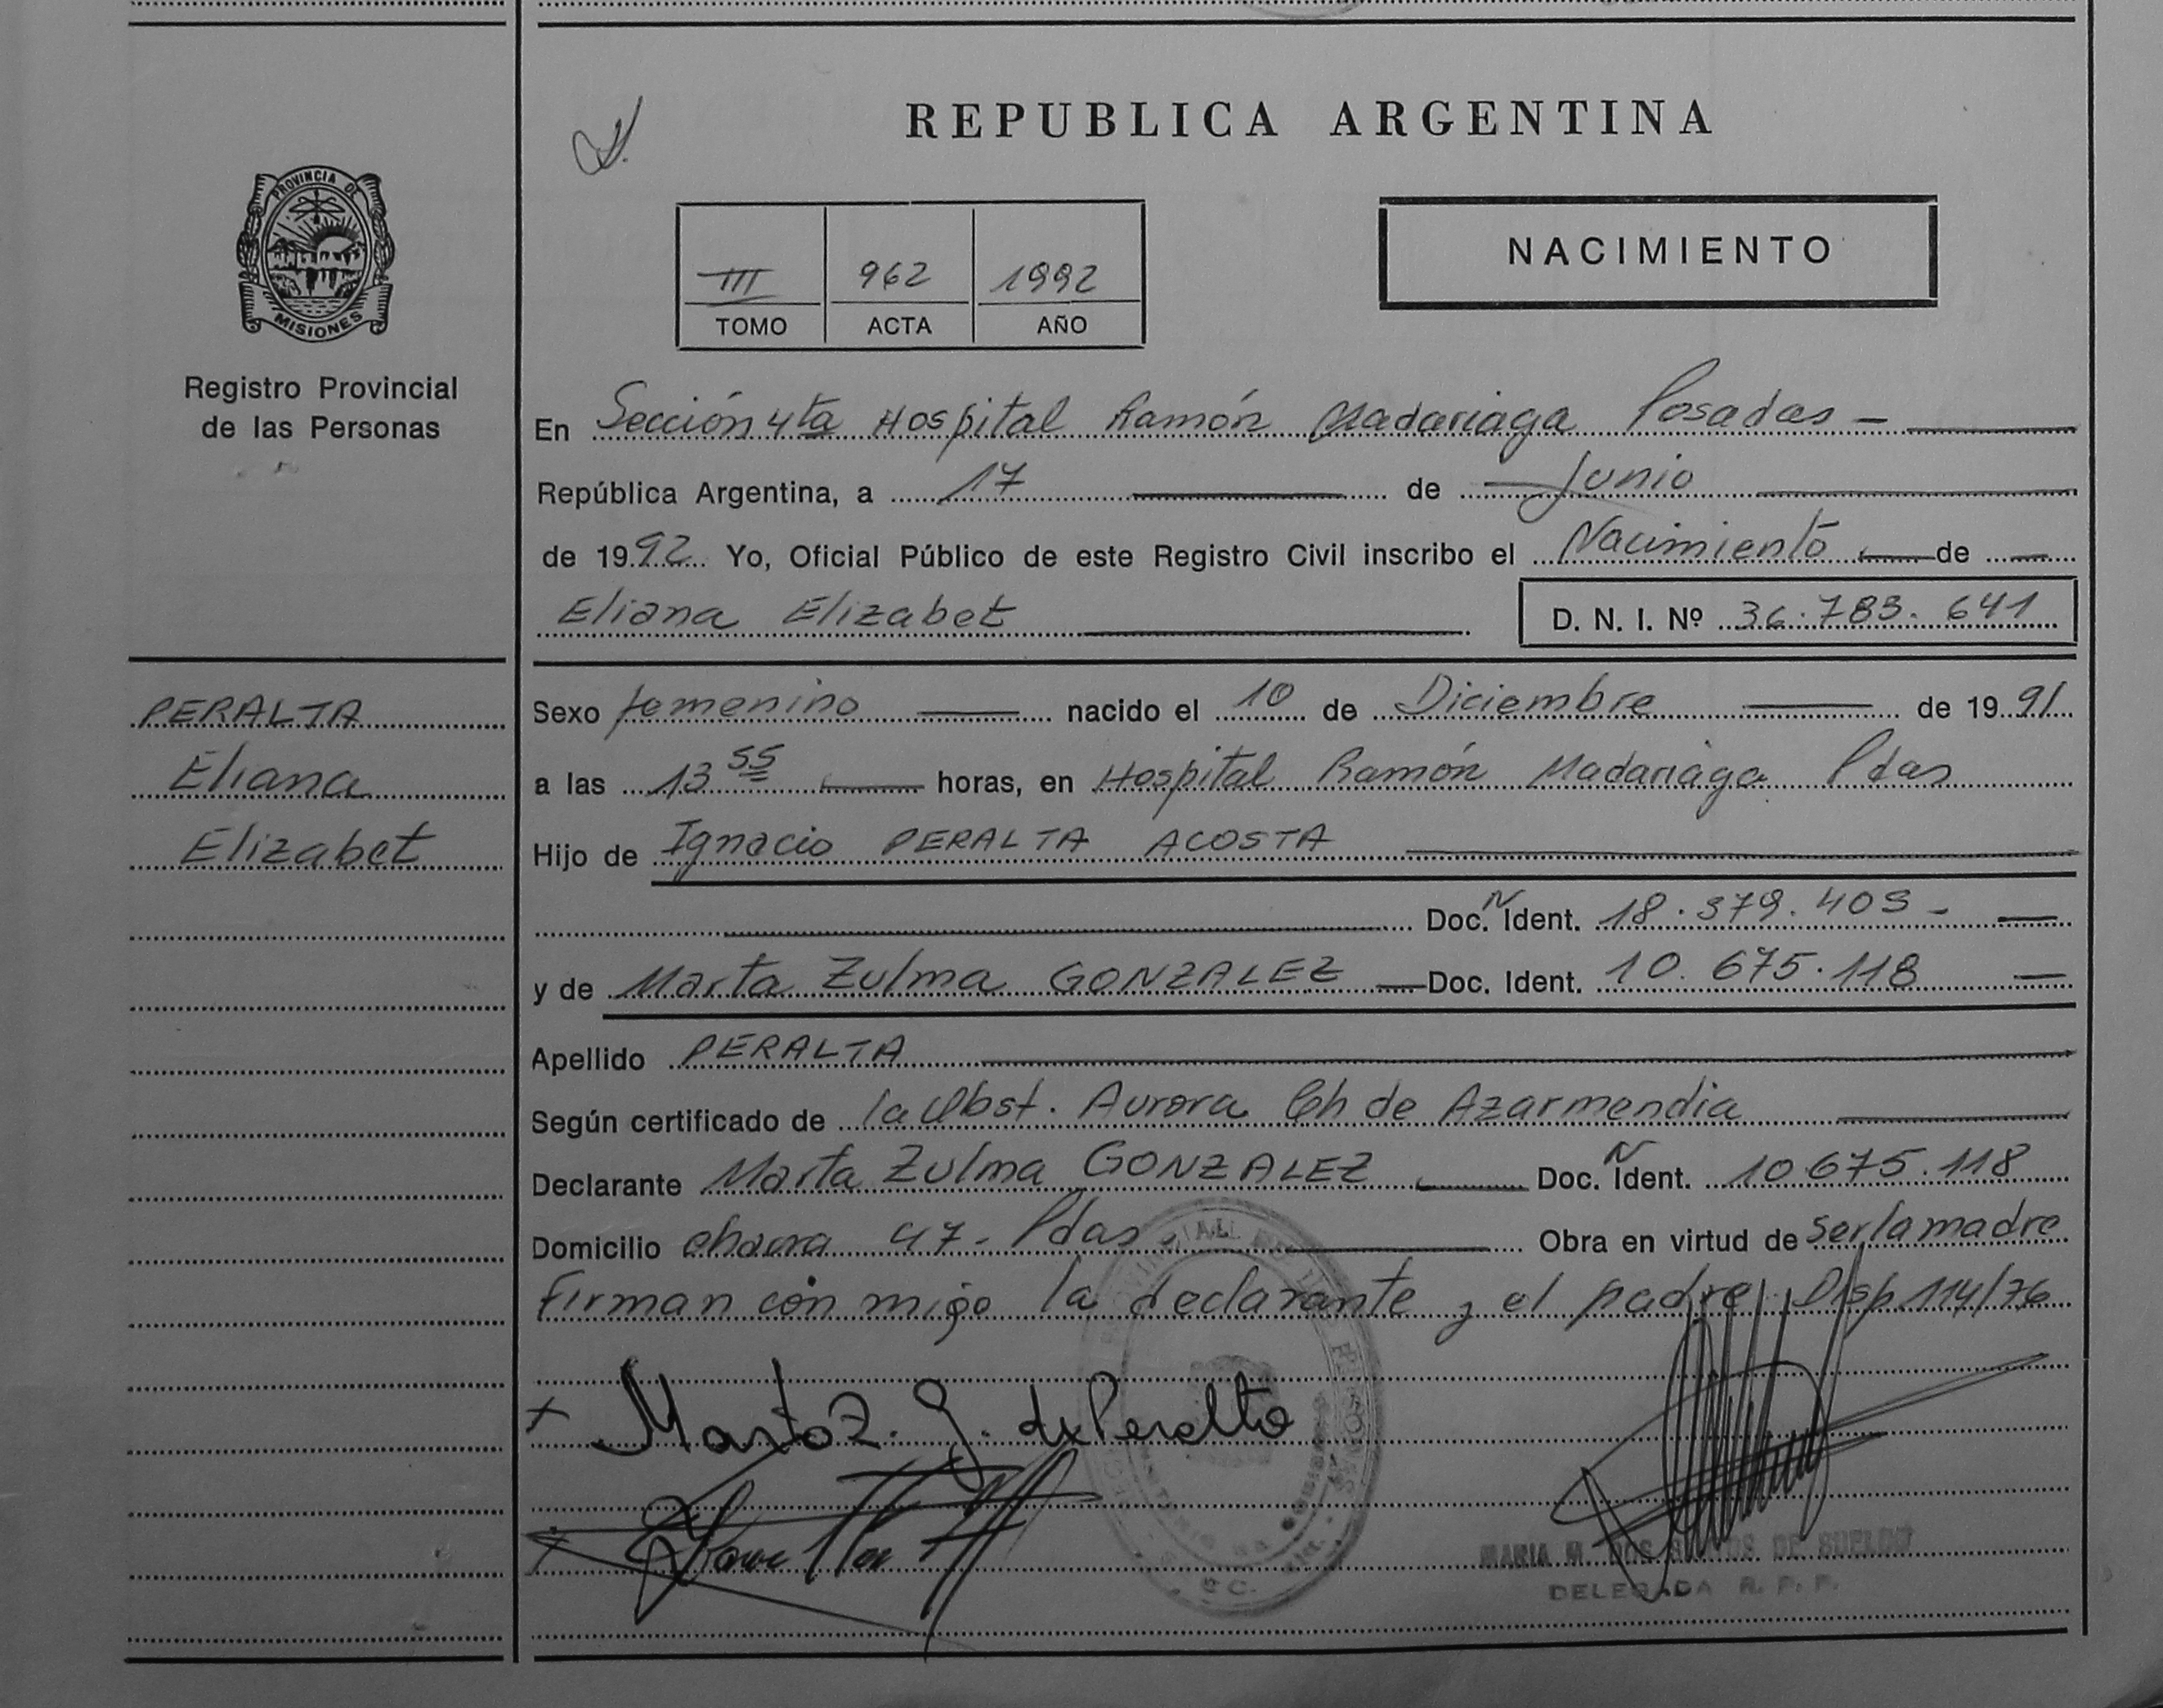 REPUBLICA ARGENTINA
PROVINCIA DE
MISIONES
Registro Provincial
de las Personas
III 962 1992
TOMO ACTA AÑO
NACIMIENTO
En Sección 4ta Hospital Ramón Madariaga Posadas -
República Argentina, a 17 de Junio
de 1992 Yo, Oficial Público de este Registro Civil inscribo el Nacimiento de
Eliana Elizabet D. N. I. Nº 36.783.641
PERALTA
Eliana
Elizabet
Sexo femenino nacido el 10 de Diciembre de 1991
a las 13 55 horas, en Hospital Ramón Madariaga Pdas
Hijo de Ignacio PERALTA ACOSTA
Doc. N Ident. 18.379.409 -
y de Marta Zulma GONZALEZ Doc. Ident. 10.675.118
Apellido PERALTA
Según certificado de la Obst. Aurora Ch de Azarmendia
Declarante Marta Zulma GONZALEZ Doc. N Ident. 10675.118
Domicilio chacra 47 - Pdas - Obra en virtud de ser la madre
Firman con migo la declarante y el padre Disp 114/76
x Marta Z. G. de Peralta
MARIA M. DOS SANTOS DE SUELDO
DELEGADA R. P. P.